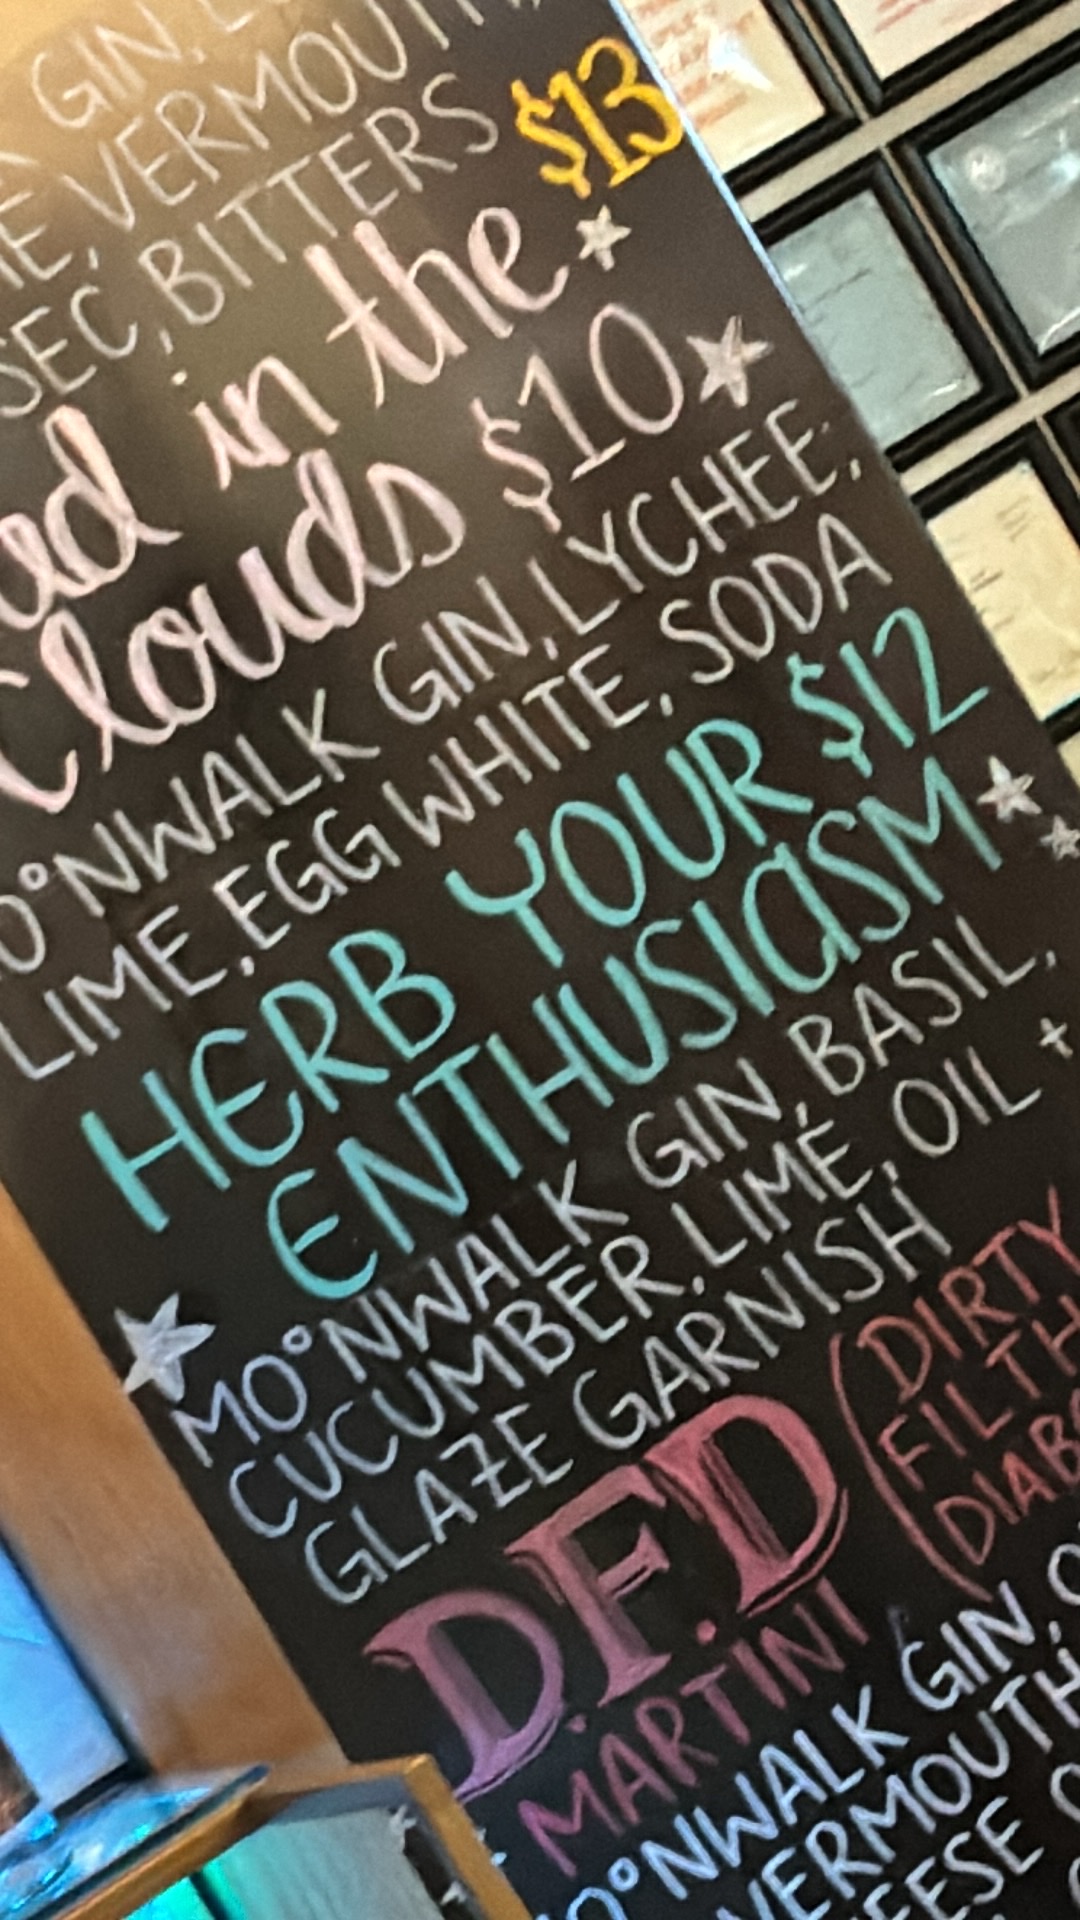 GIN,
VERMOUTH,
SEC, BITTERS $13
in the
Clouds $10
NWALK GIN, LYCHEE,
LIME, EGG WHITE, SODA
HERB YOUR $12
ENTHUSIASM
MO°NWALK GIN, BASIL,
CUCUMBER, LIME, OIL
GLAZE GARNISH
D.F.D (DIRTY
FILTH
DIAB
MARTINI
O°NWALK GIN, O
VERMOUTH